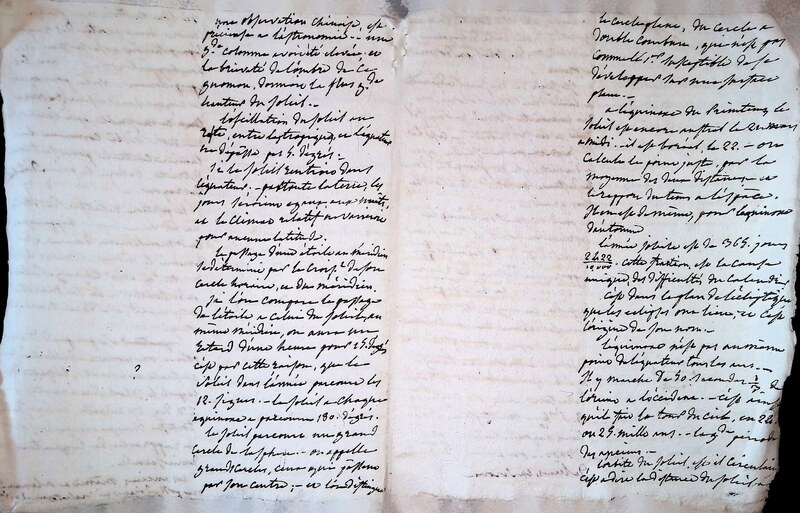 une observation chinoise, est
précieuse a l'astronomie -- une
gde colonne avoit été elevée, et
la brieveté de l'ombre de ce
gnomon, donnoit la plus gde
hauteur du soleil --
l'oscillation du soleil en
entre les tropiques, et l'equateur
ne dépasse pas
Si le soleil entroit dans
l'équateur -- par toute la terre, les
jours seroient egaux aux nuits,
et le climat relatif ne varieroit
pour aucune latitude.
le passage d'une étoile au méridien
se determine par le de son
cercle horaire, et du méridien.
Si l'on compare le passage
de l'étoile a celui du soleil, au
même méridien, on aura un
retard d'une heure pour 15. degrés
c'est par cette raison, que le
soleil dans l'année parcourt les
12. signes. -- le soleil a chaque
équinoxe a parcouru 180. degrés.
le soleil parcourt un grand
cercle de la sphere -- on appelle
grands cercles, ceux qui passent
par son centre; -- et l'on distingue
le cercle plane, du cercle a
double courbure, que n'est pas
comme le 1er susceptible de se
développer sur une surface
plane --
a l'équinoxe du Printemps, le
soleil est encore austral le 21 mars
a midi -- il est boreal, le 22. -- on
calcule le point juste, par la
moyenne des deux distances -- et
le rapport du tems a l'espace.
Il en est de même, pour l'equinoxe
d'automne
l'année solaire est de 365. jours
2422
10,000. cette fraction, est la cause
unique, des difficultés du calendrier
c'est dans le plan de l'écliptique
que les eclipses ont lieu, et c'est
l'origine de son nom --
l'équinoxe n'est pas au même
point de l'équateur tous les ans. --
Il y marche de 50. secondes de
l'orient a l'occident -- c'est ainsi
qu'il fait le tour du ciel en 24.
ou 25. mille ans. -- la gde periode
des anciens --
l'orbite du soleil, est il circulaire
c'est a dire la distance du soleil a